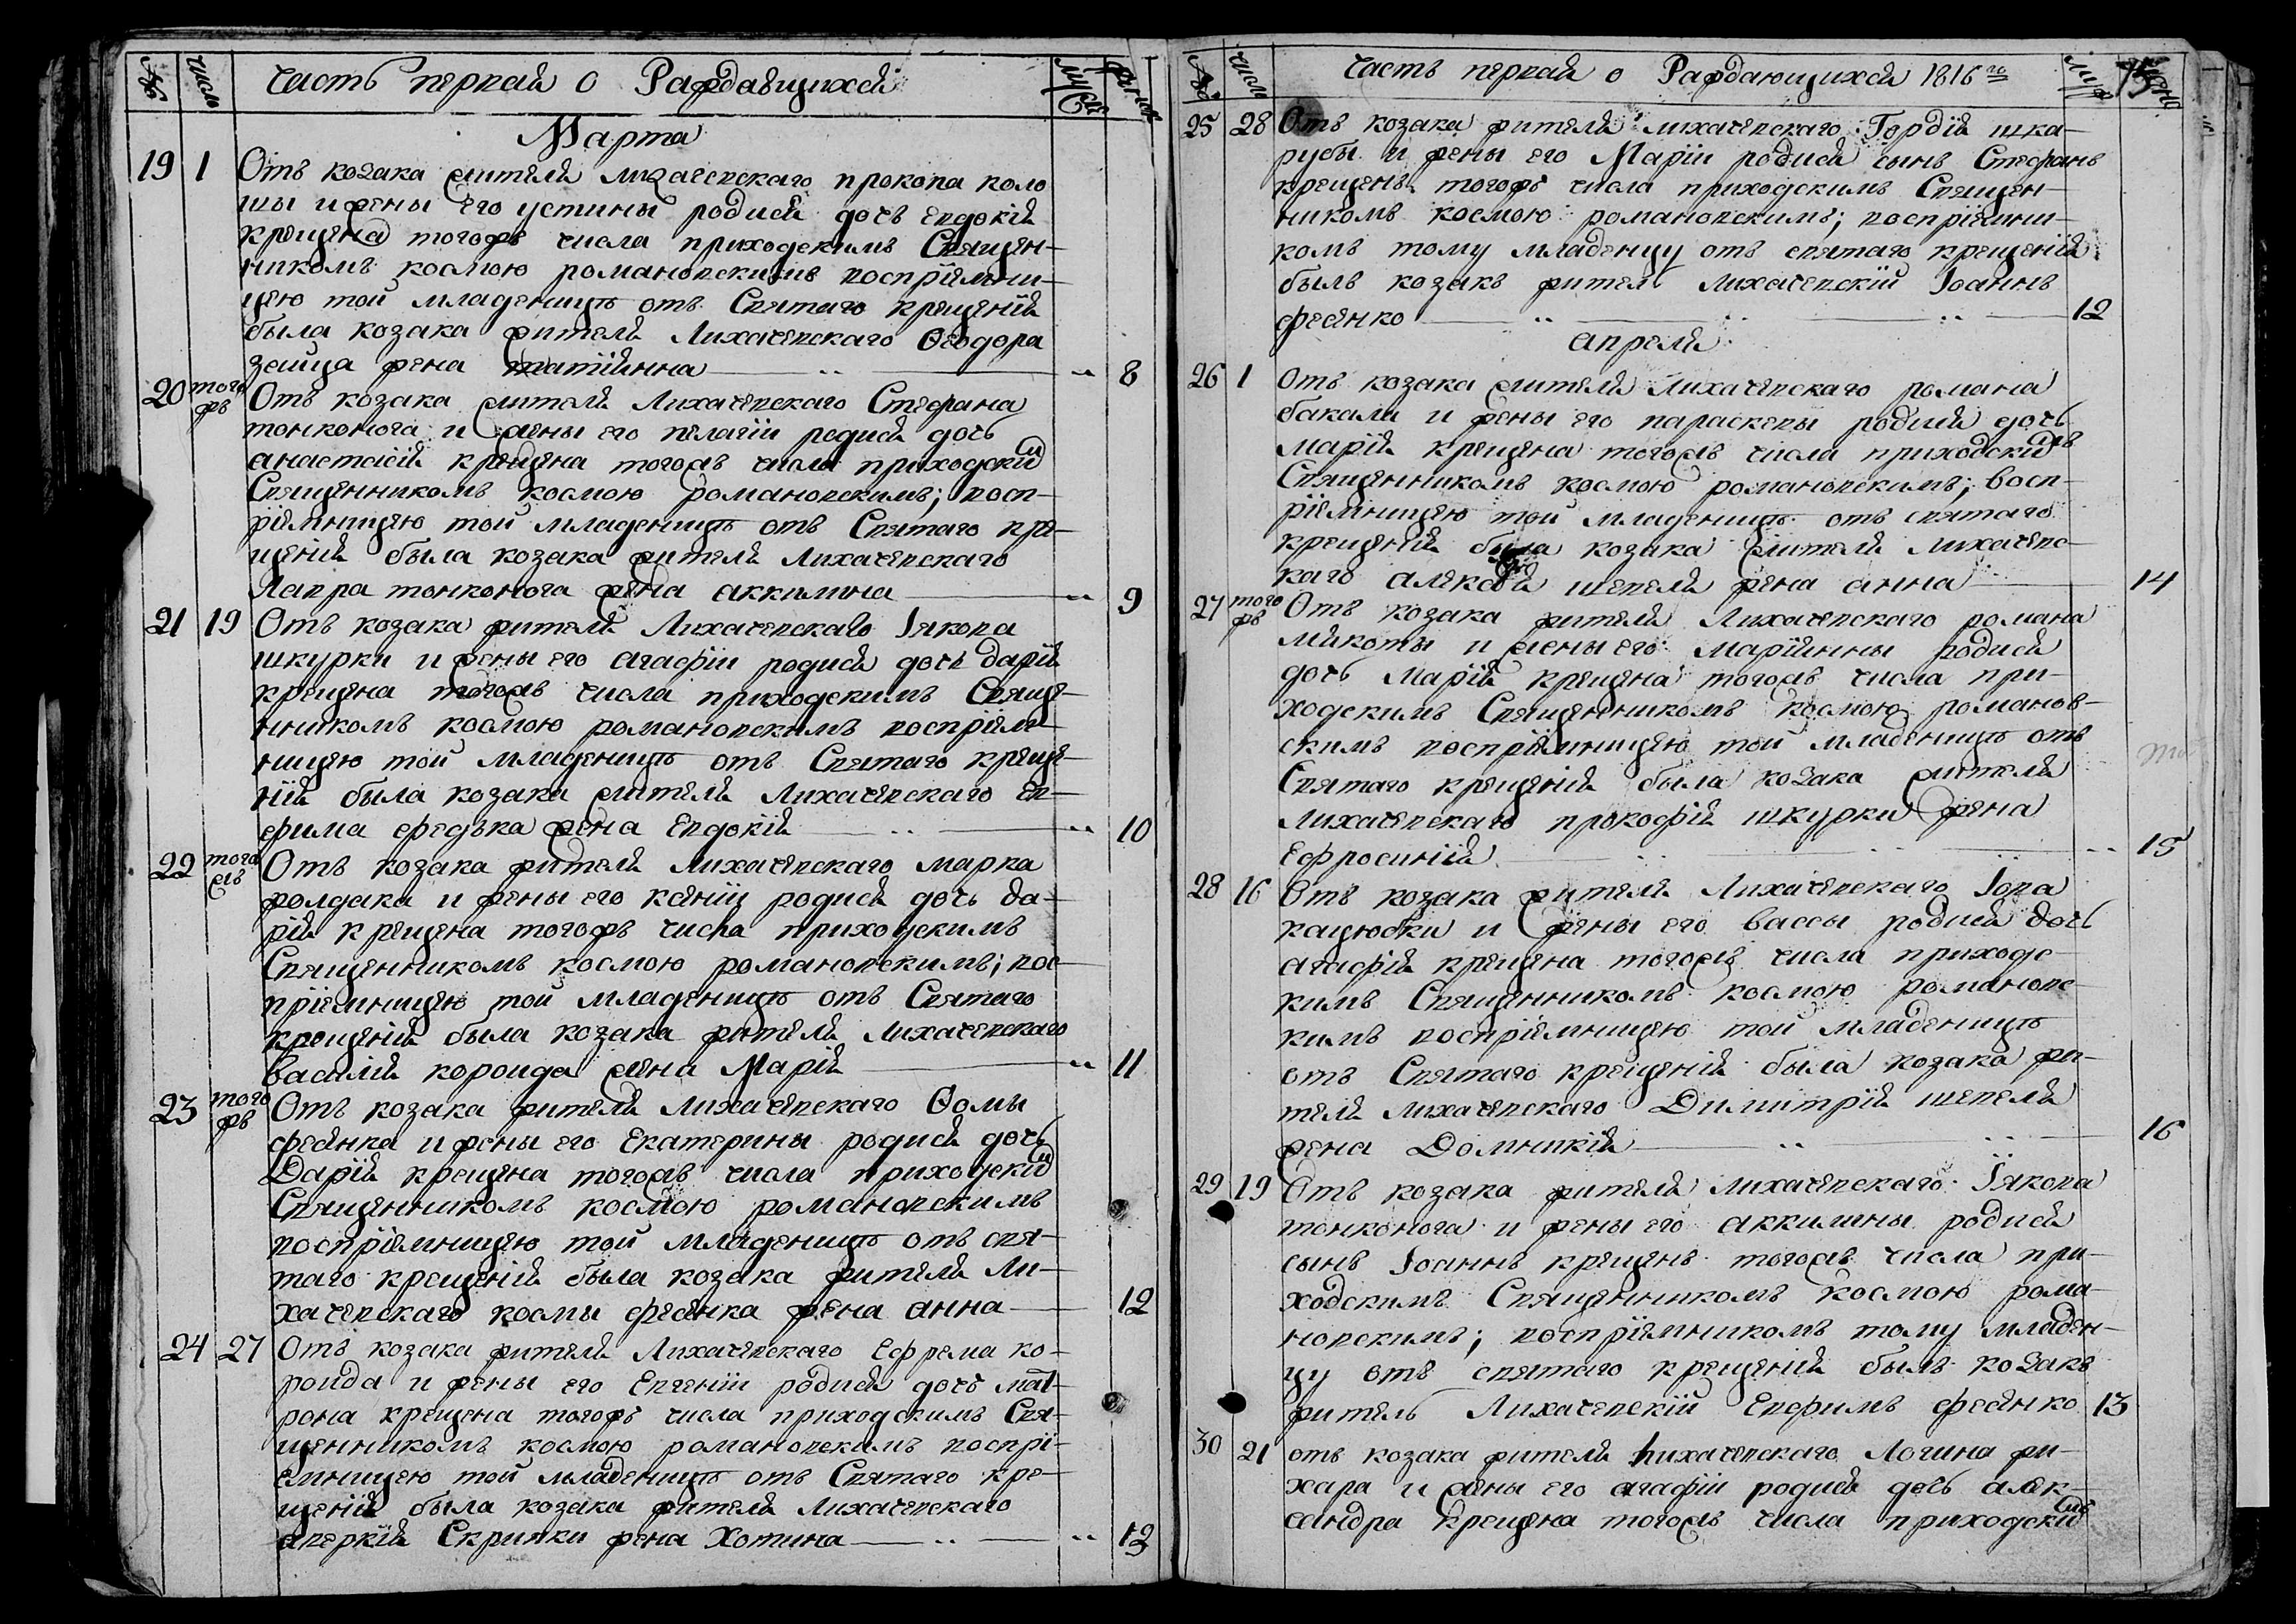 № числ Часть первая о Раждавщихся муж женск
Марта
19 1 Отъ козака жителя лихачевскаго прокопа коло
шы и жены его устины родися дочь евдокія
крещена тогожъ числа приходскимъ Священ-
никомъ космою романовскимъ воспріемни-
цею той младеницѣ отъ Святаго крещенія
была козака жителя Лихачевскаго Ѳеодора
зайца жена татіянна 8
20 тогожъ Отъ козака жителя Лихачевскаго Стефана
тонконога и жены его пелагіи родися дочь
анастасія крещена тогожъ числа приходским
Священникомъ космою романовскимъ; восп-
ріемницею той младеницѣ отъ Святаго кре-
щенія была козака жителя лихачевскаго
Лавра тонконога жена аккилина 9
21 19 Отъ козака жителя Лихачевскаго Іякова
шкурки и жены его агафіи родися дочь дарія
крещена тогожъ числа приходскимъ Свяще-
нникомъ космою романовскимъ воспріем-
ницею той младеницѣ отъ Святаго креще-
нія была козака жителя Лихачевскаго ев-
фима федька жена Евдокія 10
22 тогожъ Отъ козака жителя лихачевскаго марка
жолдака и жены его ксеніи родися дочь да-
рія крещена тогожъ числа приходскимъ
Священникомъ космою романовскимъ; вос-
пріемницею той младеницѣ отъ Святаго
крещенія была козака жителя лихачевскаго
василія коровда жена Марія 11
23 тогожъ Отъ козака жителя лихачевскаго Ѳомы
фесенка и жены его Екатерины родися дочь
Дарія крещена тогожъ числа приходским
Священникомъ космою романовскимъ
воспріемницею той младеницѣ отъ свя-
таго крещенія была козака жителя Ли-
хачевскаго космы фесенка жена анна 12
24 27 Отъ козака жителя Лихачевскаго Ефрема ко-
ровда и жены его Евгеніи родися дочь мат-
рона крещена тогожъ числа приходскимъ Свя-
щенникомъ космою романовскимъ воспрі-
емницею той младеницѣ отъ Святаго кре-
щенія была козака жителя лихачевскаго
аверкія Скрипки жена Хотина 13
№ числ Часть первая о Раждающихся 1816го муж женск
25 28 Отъ козака жителя лихачевскаго Гордія шка-
рубы и жены его Маріи родися сынъ Стефанъ
крещенъ тогожъ числа приходскимъ Священ-
никомъ космою романовскимъ; воспріемни-
комъ тому младенцу отъ святаго крещенія
былъ козакъ житель Лихачевскій Іоаннъ
фесенко 12
апреля
26 1 Отъ козака жителя Лихачевскаго романа
бакала и жены его параскевы родися дочь
марія крещена тогожъ числа приходскимъ
Священникомъ космою романовскимъ; восп-
ріемницею той младеницѣ отъ святаго
крещенія была козака жителя лихачевс-
каго алексѣя шепеля жена анна 14
27 тогожъ Отъ козака жителя Лихачевскаго романа
микоты и жены его маріянны родися
дочь Марія крещена тогожъ числа при-
ходскимъ Священникомъ космою романов-
скимъ воспріемницею той младеницѣ отъ
Святаго крещенія была козака жителя
лихачевскаго прокофія шкурки жена
Ефросинія 15
28 16 Отъ козака жителя Лихачевскаго Іова
кацюбки и жены его вассы родися дочь
агафія крещена тогожъ числа приходс-
кимъ Священникомъ космою романовс-
кимъ воспріемницею той младеницѣ
отъ Святаго крещенія была козака жи-
теля лихачевскаго Димитрія шепеля
жена Домникія 16
29 19 Отъ козака жителя лихачевскаго Іякова
тонконога и жены его аккилины родися
сынъ Іоаннъ крещенъ тогожъ числа при-
ходскимъ Священникомъ космою рома-
новскимъ; воспріемникомъ тому младен-
цу отъ святаго крещенія былъ козакъ
житель Лихачевскій Евфимъ фесенко 13
30 21 отъ козака жителя лихачевскаго Логина жи-
хара и жены его агафіи родися дочь алек-
сандра крещена тогожъ числа приходскимъ